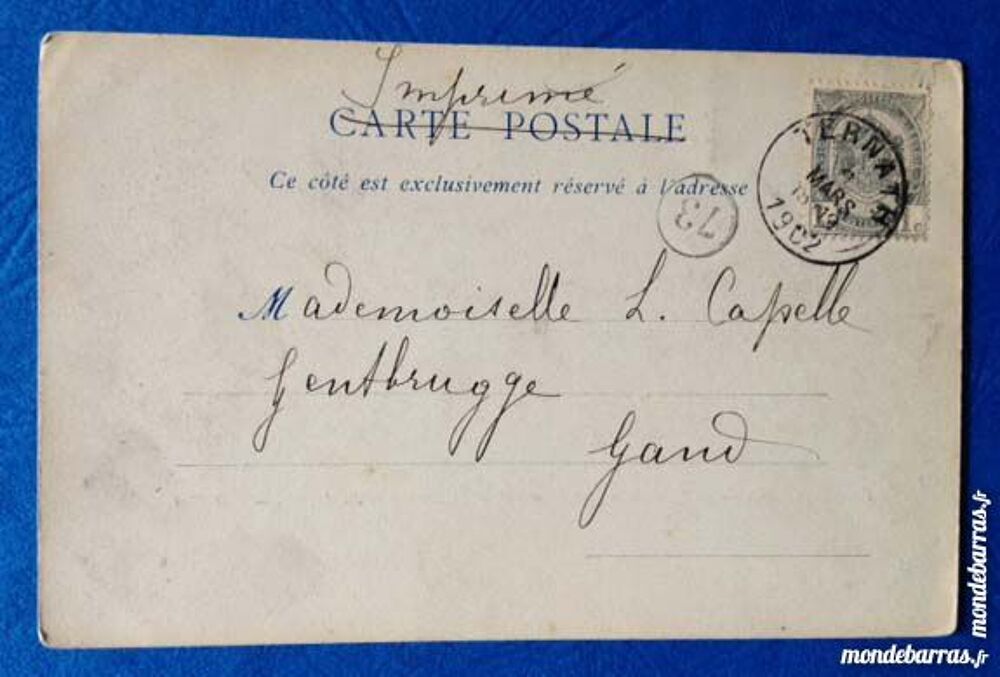 Imprimé
CARTE POSTALE
Ce côté est exclusivement réservé à l'adresse
TERNATH
MARS
1902
73
Mademoiselle L. Capelle
Gentbrugge
Gand
mondebarras.fr
mondebarras.fr